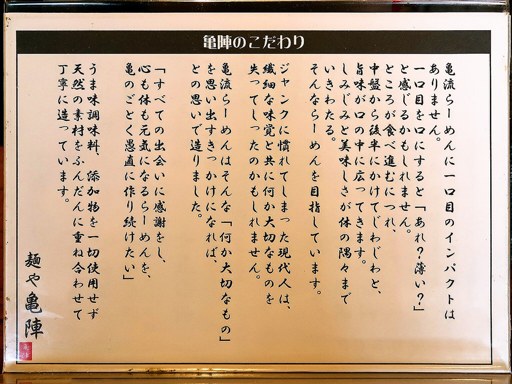 亀陣のこだわり
亀流らーめんに一口目のインパクトは
ありません。
一口目を口にすると「あれ？薄い？」
と感じるかもしれません。
ところが食べ進むにつれ、
中盤から後半にかけてじわじわと、
旨味が口の中に広ってきます。
しみじみと美味しさが体の隅々まで
いきわたる。
そんならーめんを目指しています。
ジャンクに慣れてしまった現代人は、
繊細な味覚と共に何か大切なものを
失ってしまったのかもしれません。
亀流らーめんはそんな「何か大切なもの」
を思い出すきっかけになれば、
との思いで造りました。
「すべての出会いに感謝をし、
心も体も元気になるらーめんを、
亀のごとく愚直に作り続けたい」
うま味調味料、添加物を一切使用せず
天然の素材をふんだんに重ね合わせて
丁寧に造っています。
麺や亀陣